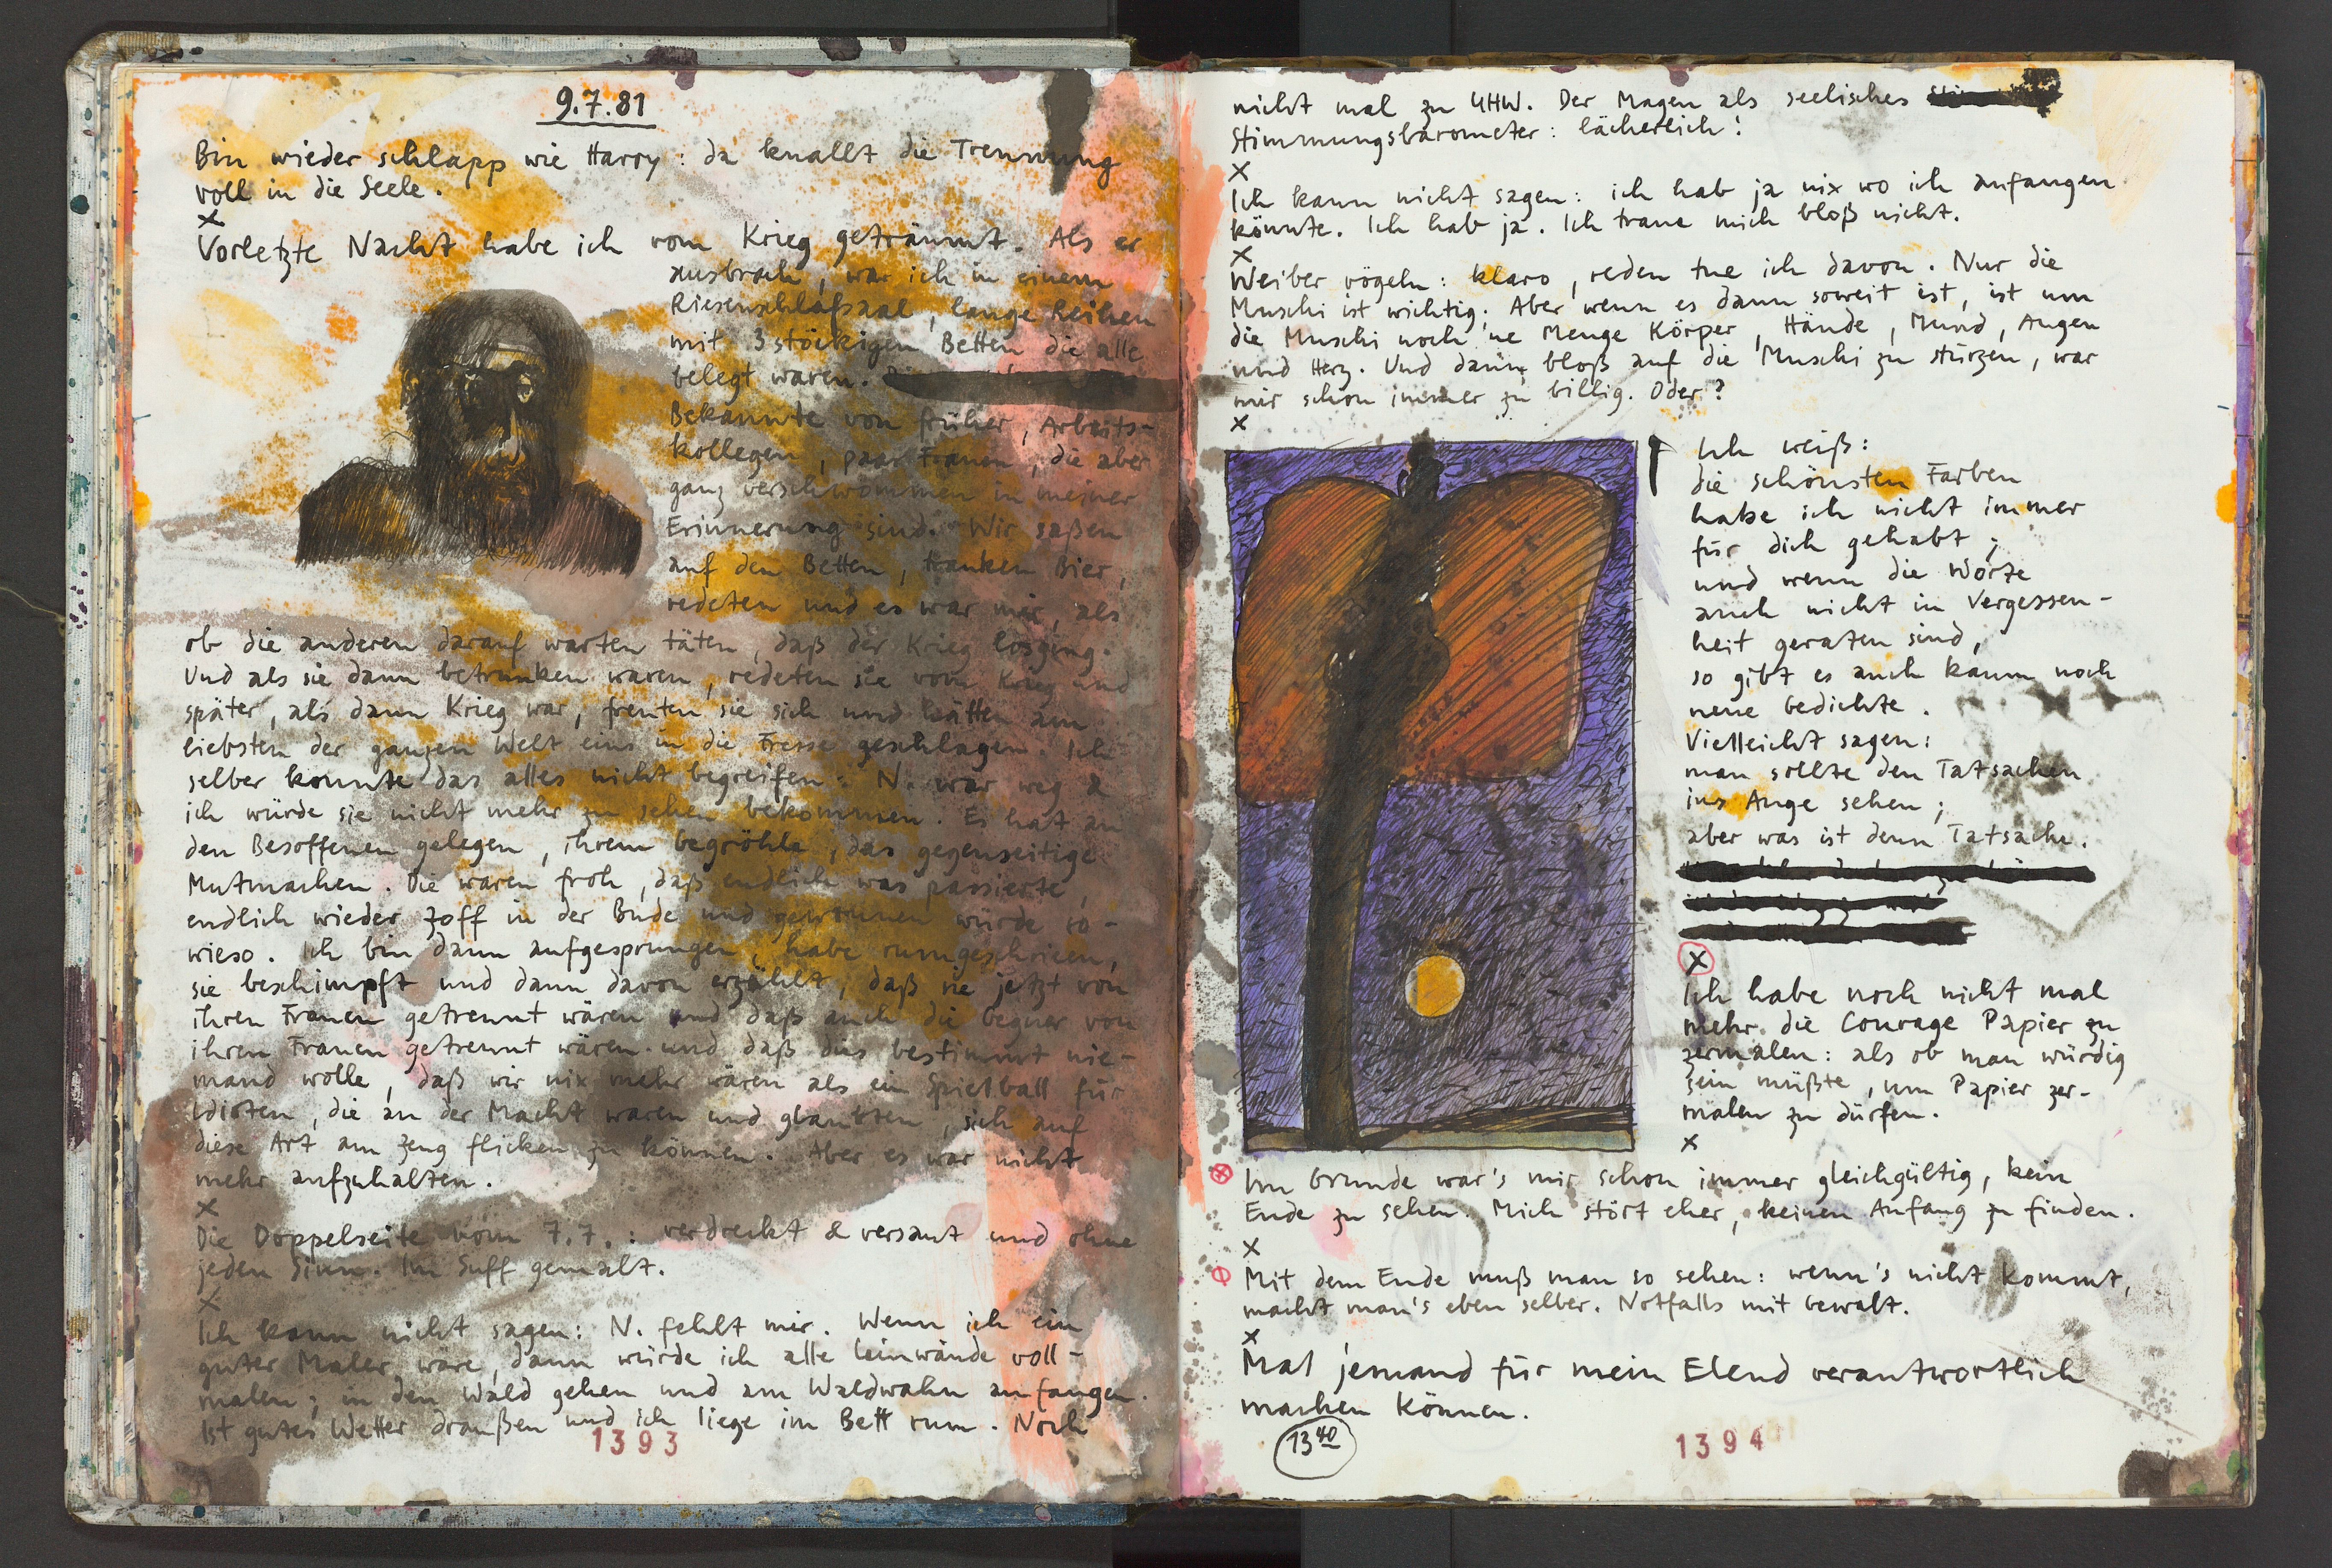 9.7.81
Bin wieder schlapp wie Harry: da knallt die Trennung
voll in die Seele.
x
Vorletzte Nacht habe ich vom Krieg geträumt. Als er
ausbrach, war ich in einem
Riesenschlafsaal, lange Reihen
mit 3stöckigen Betten die alle
belegt waren.
Bekannte von früher, Arbeits-
kollegen, paar Frauen, die aber
ganz verschwommen in meiner
Erinnerung sind. Wir saßen
auf den Betten, tranken Bier,
redeten und es war mir, als
ob die anderen darauf warten täten, daß der Krieg losging.
Und als sie dann betrunken waren, redeten sie vom Krieg und
später, als dann Krieg war, freuten sie sich und hätten am
liebsten der ganzen Welt eins in die Fresse geschlagen. Ich
selber konnte das alles nicht begreifen: N. war weg &
ich würde sie nicht mehr zu sehen bekommen. Es hat an
den Besoffenen gelegen, ihrem begröhle, das gegenseitige
Mutmachen. Die waren froh, daß endlich was passierte,
endlich wieder Zoff in der Bude und gewonnen würde so-
wieso. Ich bin dann aufgesprungen, habe rumgeschrieen,
sie beschimpft und dann davon erzählt, daß sie jetzt von
ihren Frauen getrennt wären und daß auch die Gegner von
ihren Frauen getrennt wären und daß dies bestimmt nie-
mand wolle, daß wir nix mehr wären als ein Spielball für
Idioten, die an der Macht waren und glaubten, sich auf
diese Art am Zeug flicken zu können. Aber es war nicht
mehr aufzuhalten.
x
Die Doppelseite vom 7.7.: verdreckt & versaut und ohne
jeden Sinn. Im Suff gemalt.
x
Ich kann nicht sagen: N. fehlt mir. Wenn ich ein
guter Maler wäre, dann würde ich alle Leinwände voll-
malen; in den Wald gehen und am Waldwahn anfangen.
Ist gutes Wetter draußen und ich liege im Bett rum. Noch
1393
nicht mal zu UHW. Der Magen als seelisches
Stimmungsbarometer: lächerlich!
x
Ich kann nicht sagen: ich hab ja nix wo ich anfangen
könnte. Ich hab ja. Ich traue mich bloß nicht.
x
Weiber vögeln: klaro, reden tue ich davon. Nur die
Muschi ist wichtig. Aber wenn es dann soweit ist, ist um
die Muschi noch 'ne Menge Körper, Hände, Mund, Augen
und Herz. Und dann bloß auf die Muschi zu stürzen, war
mir schon immer zu billig. Oder?
x
Ich weiß:
die schönsten Farben
habe ich nicht immer
für dich gehabt;
und wenn die Worte
auch nicht in Vergessen-
heit geraten sind,
so gibt es auch kaum noch
neue Gedichte.
Vielleicht sagen:
man sollte den Tatsachen
ins Auge sehen;
aber was ist denn Tatsache.
x
Ich habe noch nicht mal
mehr die Courage Papier zu
zermalen: als ob man würdig
sein müßte, um Papier zer-
malen zu dürfen.
x
Im Grunde war's mir schon immer gleichgültig, kein
Ende zu sehen. Mich stört eher, keinen Anfang zu finden.
x
Mit dem Ende muß man so sehen: wenn's nicht kommt,
macht man's eben selber. Notfalls mit Gewalt.
x
Mal jemand für mein Elend verantwortlich
machen können.
13 40
1394